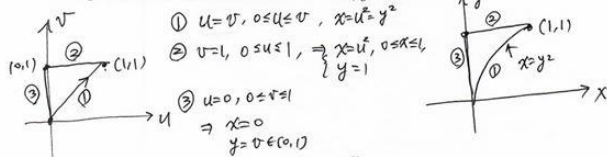 v
(0,1)
②
(1,1)
③
①
u
① u=v, 0≤u≤v, x=u²=y²
② v=1, 0≤u≤1, ⇒ { x=u², 0≤x≤1,
y=1
③ u=0, 0≤v≤1
⇒ x=0
y=v∈(0,1)
y
②
(1,1)
③
①
x=y²
x